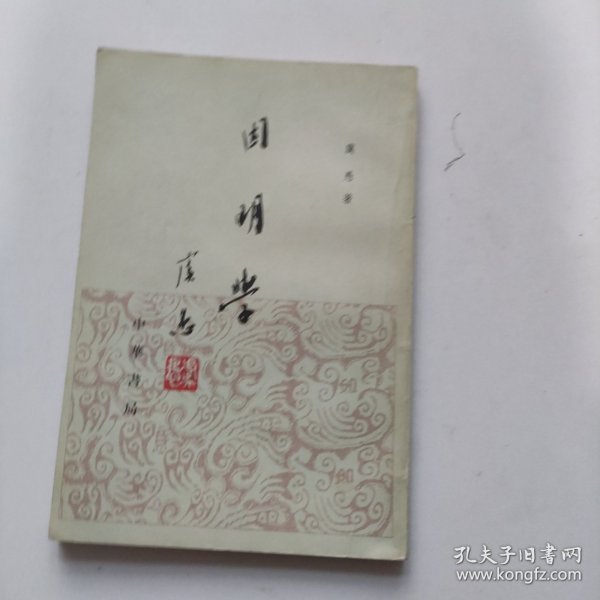 虞愚著
因明學
虞愚
中華書局
孔夫子旧书网
www.kongfz.com